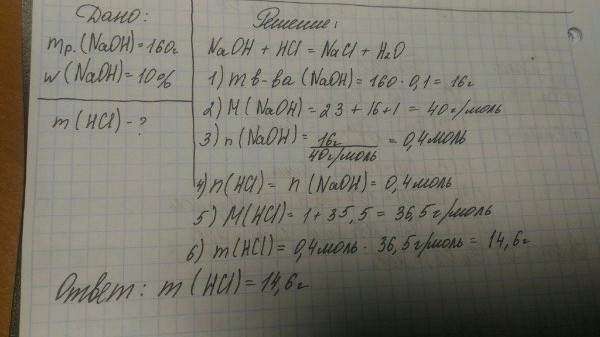 Дано:
mр.(NaOH)=160г
w(NaOH)=10%
m(HCl)-?
Решение:
NaOH + HCl = NaCl + H₂O
1) m в-ва (NaOH)=160·0,1=16г
2) M(NaOH)=23+16+1=40г/моль
3) n(NaOH)=16г/40г/моль=0,4моль
4) n(HCl)=n(NaOH)=0,4моль
5) M(HCl)=1+35,5=36,5г/моль
6) m(HCl)=0,4моль·36,5г/моль=14,6г
Ответ: m(HCl)=14,6г